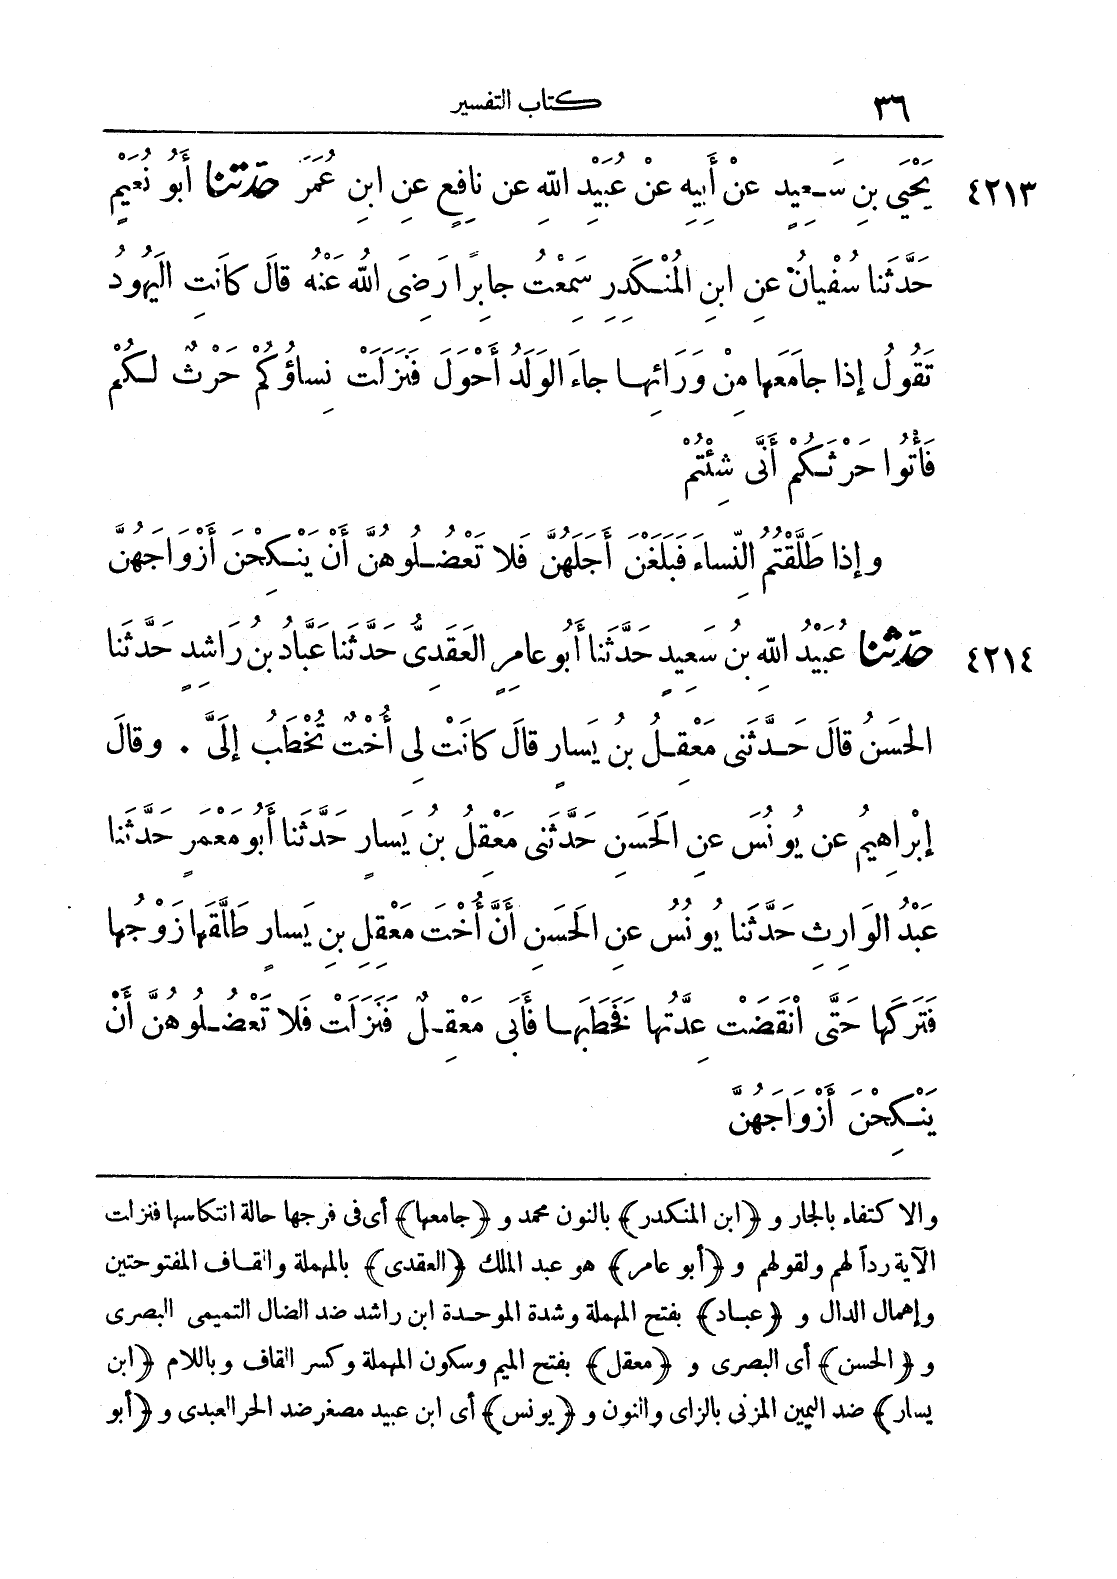 ٣٦ كتاب التفسير
٤٢١٣ يَحْيَى بنِ سَعِيدٍ عنْ أَبِيهِ عَنْ عُبَيْدِ اللهِ عن نافِعٍ عنِ ابنِ عُمَرَ حَدّثنا أبُو نُعَيْمٍ
حَدَّثَنا سُفْيانُ عنِ ابنِ المُنْكَدِرِ سَمِعْتُ جابِرًا رَضِىَ اللهُ عَنْهُ قالَ كانَتِ اليَهُودُ
تَقُولُ إذا جامَعَها مِنْ وَرَائِها جاءَ الوَلَدُ أَحْوَلَ فَنَزَلَتْ نِساؤُكُمْ حَرْثٌ لَكُمْ
فَأْتُوا حَرْثَكُمْ أَنَّى شِئْتُمْ
وإذا طَلَّقْتُمُ النِّساءَ فَبَلَغْنَ أَجَلَهُنَّ فَلا تَعْضُلُوهُنَّ أَنْ يَنْكِحْنَ أَزْوَاجَهُنَّ
٤٢١٤ حَدّثنا عُبَيْدُ اللهِ بنُ سَعِيدٍ حَدَّثَنا أَبُو عامِرٍ العَقَدِىُّ حَدَّثَنا عَبَّادُ بنُ رَاشِدٍ حَدَّثَنا
الحَسَنُ قالَ حَدَّثَنِى مَعْقِلُ بنُ يَسارٍ قالَ كانَتْ لِى أُخْتٌ تُخْطَبُ إلَىَّ . وقالَ
إبْراهِيمُ عن يُونُسَ عنِ الحَسَنِ حَدَّثَنِى مَعْقِلُ بنُ يَسارٍ حَدَّثَنا أَبُو مَعْمَرٍ حَدَّثَنا
عَبْدُ الوَارِثِ حَدَّثَنا يُونُسُ عنِ الحَسَنِ أَنَّ أُخْتَ مَعْقِلِ بنِ يَسارٍ طَلَّقَها زَوْجُها
فَتَرَكَها حَتَّى انْقَضَتْ عِدَّتُها فَخَطَبَها فَأَبَى مَعْقِلٌ فَنَزَلَتْ فَلا تَعْضُلُوهُنَّ أَنْ
يَنْكِحْنَ أَزْوَاجَهُنَّ
والاكتفاء بالجار و ﴿ابن المنكدر﴾ بالنون محمد و ﴿جامعها﴾ أى فى فرجها حالة انتكاسها فنزلت
الآية رداً لهم ولقولهم و ﴿أبو عامر﴾ هو عبد الملك ﴿العقدى﴾ بالمهملة والقاف المفتوحتين
وإهمال الدال و ﴿عباد﴾ بفتح المهملة وشدة الموحدة ابن راشد ضد الضال التميمى البصرى
و ﴿الحسن﴾ أى البصرى و ﴿معقل﴾ بفتح الميم وسكون المهملة وكسر القاف وباللام ﴿ابن
يسار﴾ ضد اليمين المزنى بالزاى والنون و ﴿يونس﴾ أى ابن عبيد مصغر ضد الحر العبدى و ﴿أبو